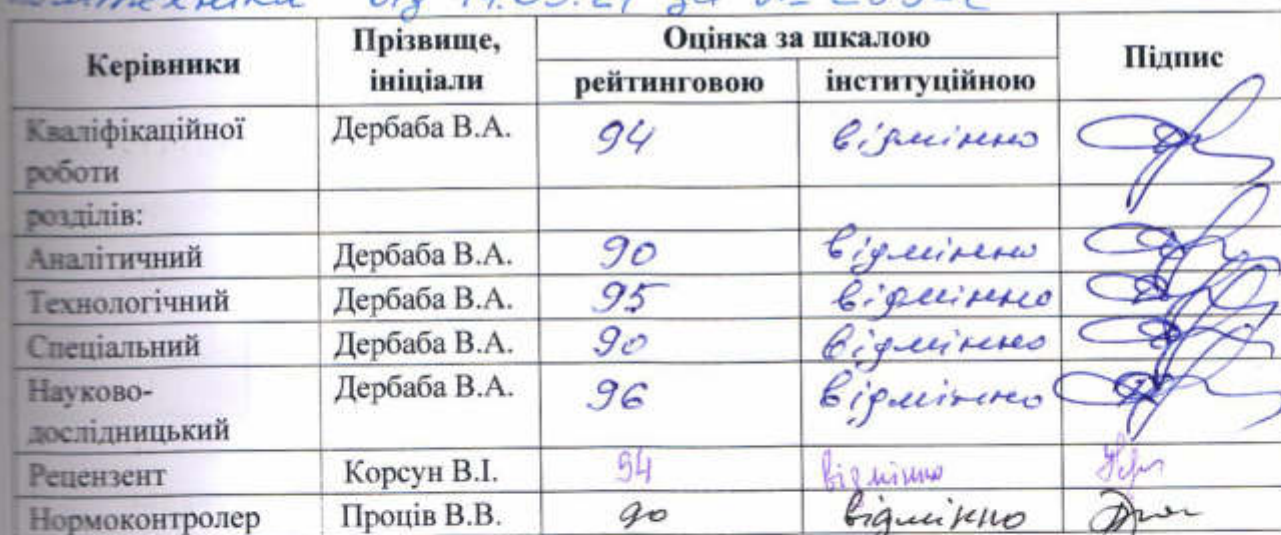 від
Керівники Прізвище, ініціали Оцінка за шкалою Підпис
рейтинговою інституційною
Кваліфікаційної роботи Дербаба В.А. 94 відмінно
розділів:
Аналітичний Дербаба В.А. 90 відмінно
Технологічний Дербаба В.А. 95 відмінно
Спеціальний Дербаба В.А. 90 відмінно
Науково-дослідницький Дербаба В.А. 96 відмінно
Рецензент Корсун В.І. 94 відмінно
Нормоконтролер Проців В.В. 90 відмінно